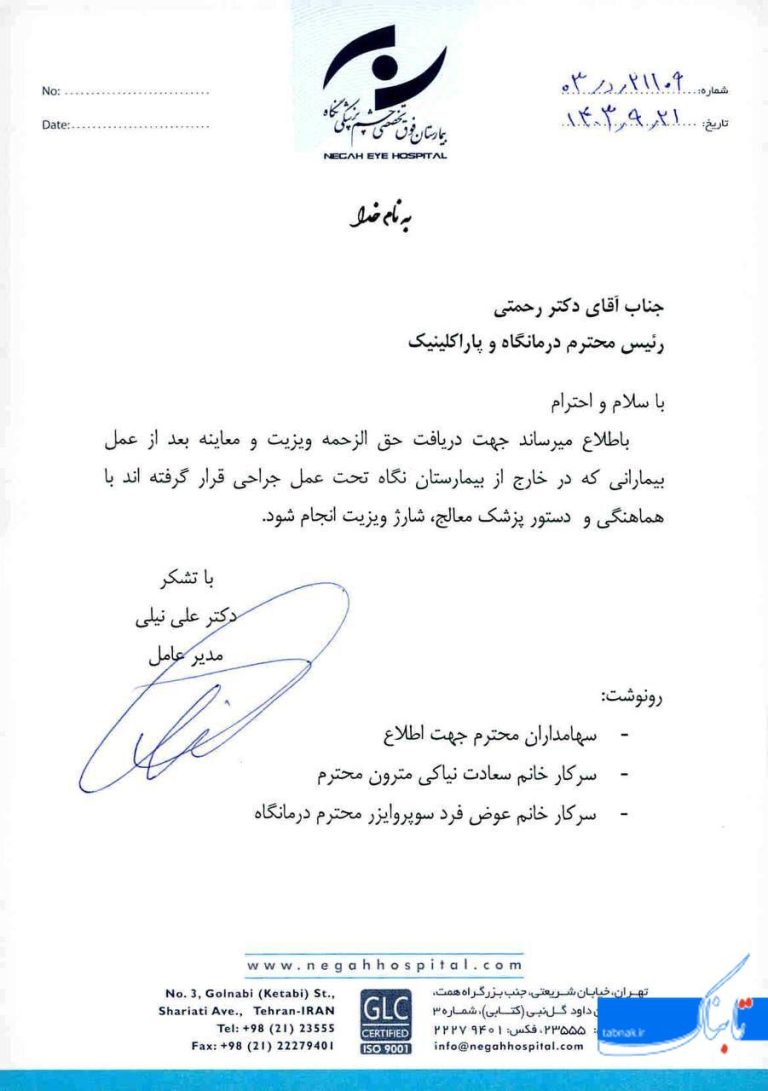 No: ........................
Date:........................
بیمارستان فوق تخصصی چشم پزشکی نگاه
NEGAH EYE HOSPITAL
شماره: ۰۳/د/۲۱۱۰۹
تاریخ: ۱۴۰۳/۹/۲۱
به نام خدا
جناب آقای دکتر رحمتی
رئیس محترم درمانگاه و پاراکلینیک
با سلام و احترام
باطلاع میرساند جهت دریافت حق الزحمه ویزیت و معاینه بعد از عمل
بیمارانی که در خارج از بیمارستان نگاه تحت عمل جراحی قرار گرفته اند با
هماهنگی و دستور پزشک معالج، شارژ ویزیت انجام شود.
با تشکر
دکتر علی نیلی
مدیر عامل
رونوشت:
- سهامداران محترم جهت اطلاع
- سرکار خانم سعادت نیاکی مترون محترم
- سرکار خانم عوض فرد سوپروایزر محترم درمانگاه
www.negahhospital.com
No. 3, Golnabi (Ketabi) St.,
Shariati Ave., Tehran-IRAN
Tel: +98 (21) 23555
Fax: +98 (21) 22279401
GLC
CERTIFIED
ISO 9001
تهران، خیابان شریعتی، جنب بزرگراه همت،
داود گل‌نبی (کتابی)، شماره ۳
۲۳۵۵۵، فکس: ۲۲۲۷۹۴۰۱
info@negahhospital.com
تابناک
tabnak.ir